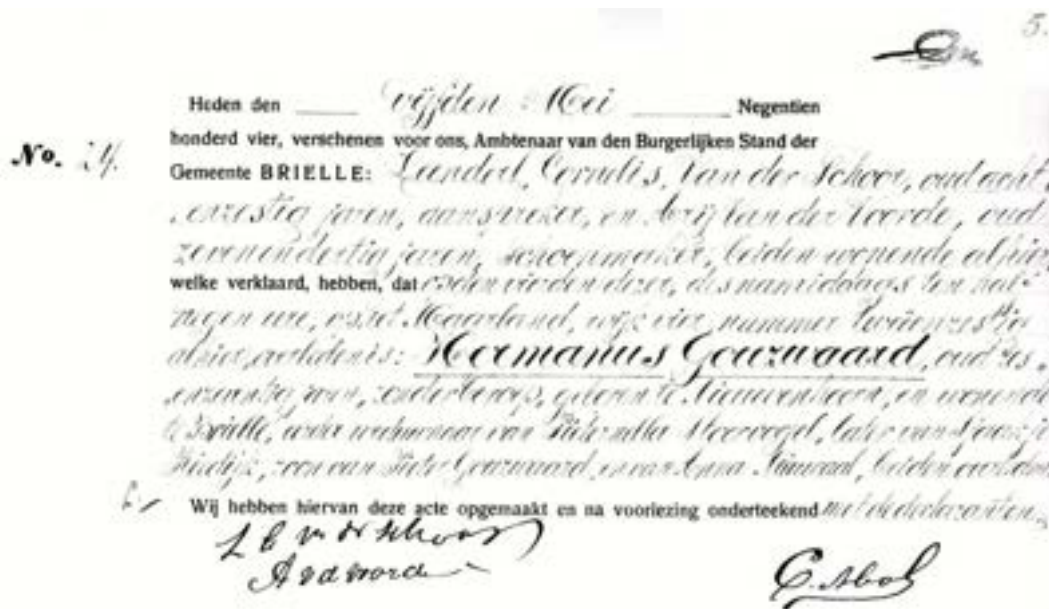 5.
Heden den vijfden Mei Negentien
honderd vier, verschenen voor ons, Ambtenaar van den Burgerlijken Stand der
No. 24.
Gemeente BRIELLE: Leendert Cornelis van der Schoor, oud acht
enzestig jaren, aanspreker, en Arij van der Voorde, oud
zevenendertig jaren, schoenmaker, beiden wonende alhier,
welke verklaard, hebben, dat op den vierden dezer, des namiddags ten half
negen ure, in het Maarland, wijk vier, nummer
alhier, overleden is: Hermanus Gouzwaard, oud zes
jaren, zonder beroep, geboren te Nieuwenhoorn, en wonende
te Brielle, eerder weduwnaar van Pieternella later van
zoon van Pieter Gouzwaard, en van Anna beiden overleden
Wij hebben hiervan deze acte opgemaakt en na voorlezing onderteekend met de declaranten.
L C v der Schoor
A v d voorde